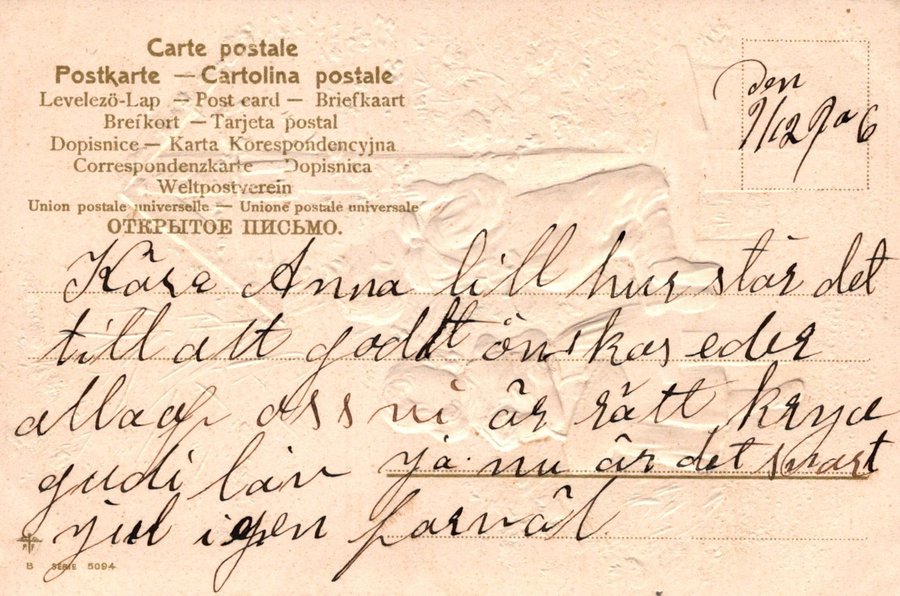 Carte postale
Postkarte — Cartolina postale
Levelezö-Lap — Post card — Briefkaart
Brefkort — Tarjeta postal
Dopisnice — Karta Korespondencyjna
Correspondenzkarte Dopisnica
Weltpostverein
Union postale universelle — Unione postale universale
ОТКРЫТОЕ ПИСЬМО.
Den
9/12 906
Kära Anna lill hur står det
till alt godt önskas eder
alla af oss vi är rätt krya
gudi lav ja nu är det snart
jul igen farväl
B SERIE 5094